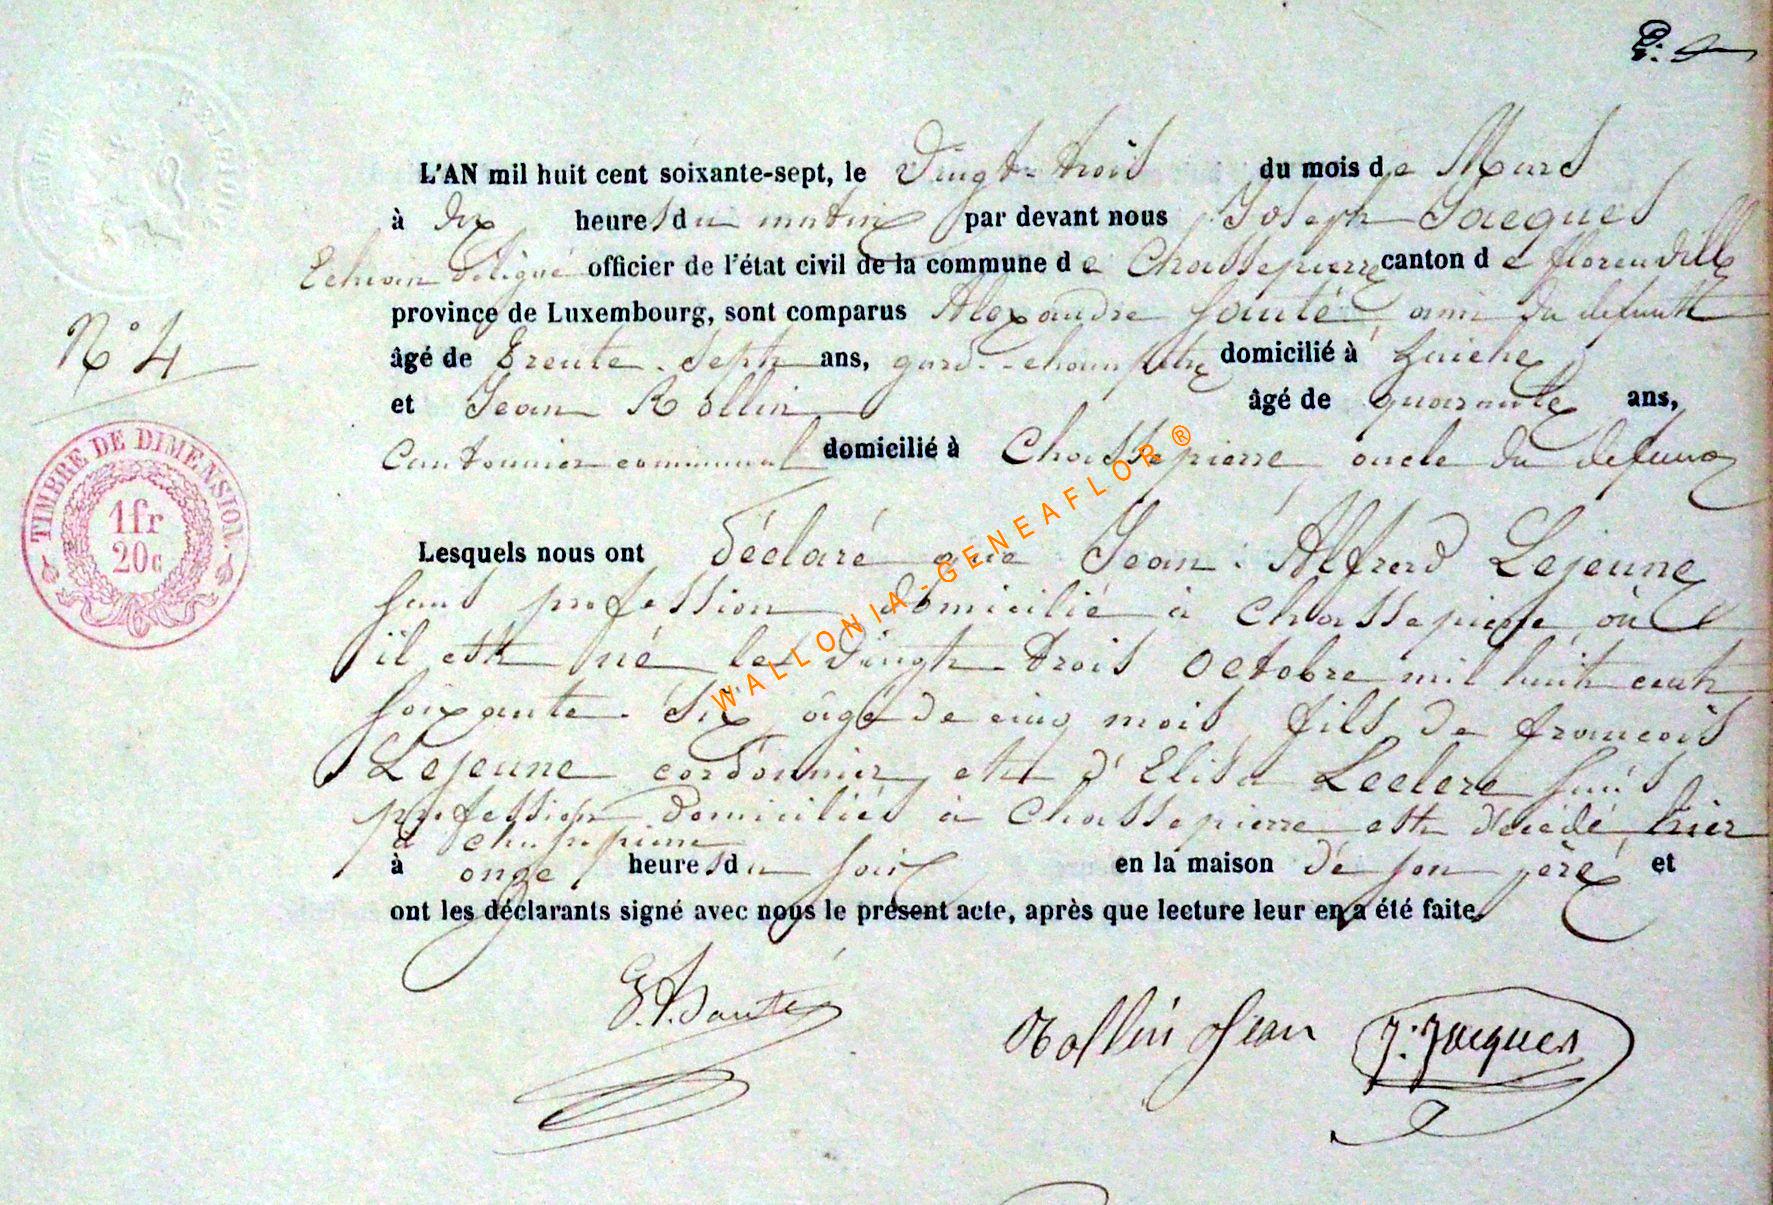 L'AN mil huit cent soixante-sept, le Vingt-trois du mois de Mars
à dix heures du matin par devant nous Joseph Jacques
Echevin délégué officier de l'état civil de la commune de Chassepierre canton de florenville
province de Luxembourg, sont comparus Alexandre Santé, ami du defunt
N° 4
âgé de Trente-Sept ans, gard-champêtre domicilié à Laiche
et Jean Rollin âgé de quarante ans,
Cantonnier communal domicilié à Chassepierre, oncle du defunt
TIMBRE DE DIMENSION.
1fr
20c
Lesquels nous ont déclaré que Jean-Alfred Lejeune
sans profession domicilié à Chassepierre, où
il est né le Vingt-trois octobre mil huit cent
soixante-Six, âgé de cinq mois, fils de françois
Lejeune cordonnier, et d'Elisa Leclere sans
profession domiciliés à Chassepierre est décédé, hier
à Chassepierre
à onze heures du soir en la maison de son père, et
ont les déclarants signé avec nous le présent acte, après que lecture leur en a été faite.
Santé Rollin Jean J. Jacques
WALLONIA-GENEAFLOR®